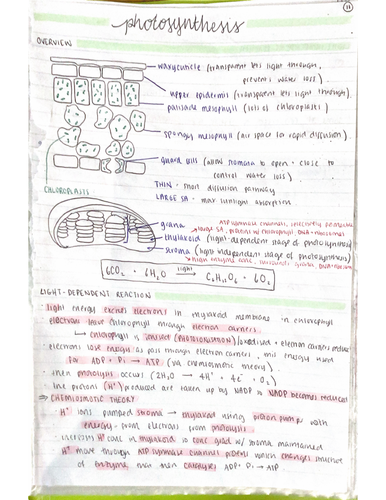 photosynthesis
OVERVIEW
waxy cuticle (transparent lets light through,
prevents water loss)
upper epidermis (transparent lets light through)
palisade mesophyll (lots of chloroplasts)
spongy mesophyll (air space for rapid diffusion)
guard cells (allow stomata to open + close to
control water loss)
CHLOROPLASTS
THIN - short diffusion pathway
LARGE SA - max sunlight absorption
ATP synthase channels, selectively permeable
grana
large SA, proteins w/ chlorophyll, DNA + ribosomes
thylakoid (light-dependent stage of photosynthesis)
stroma (light independent stage of photosynthesis)
high enzyme conc, surrounds grana, DNA + ribosomes
6CO2 + 6H2O light C6H12O6 + 6O2
LIGHT-DEPENDENT REACTION
light energy excites electrons in thylakoid membrane in chlorophyll
electrons leave chlorophyll through electron carriers
→ chlorophyll is ionised (PHOTOIONISATION) oxidised + electron carriers reduced
electrons lose energy as pass through electron carriers, this energy used
for ADP + Pi → ATP (via chemiosmotic theory).
then photolysis occurs (2H2O → 4H+ + 4e- + O2)
the protons (H+) produced are taken up by NADP so NADP becomes reduced
⇒ CHEMIOSMOTIC THEORY
H+ ions pumped stroma → thylakoid using proton pump with
energy from electrons from photolysis
increases H+ conc in thylakoid so conc grad w/ stroma maintained
H+ move through ATP synthase channel proteins which changes structure
of enzyme, that then catalyses ADP + Pi → ATP